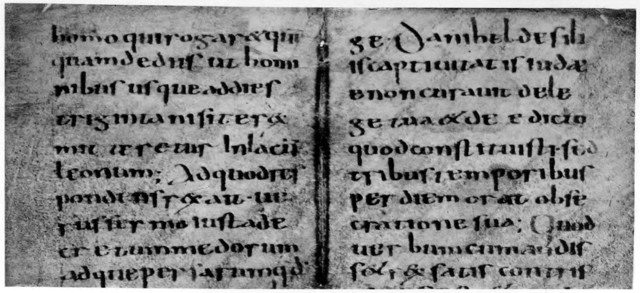 homo qui rogar& que
quam de diis ut homi
nibus usque ad dies
triginta nisi te r&
mitteretur In lacu
leonum; Ad quod res
pondens r& ait ue
rus sermo iuxta de
cretum medorum
adque persarum qd
ge. Danihel de fili
is captiuitatis iuda
e non curauit de le
ge tua & de edicto
quod constituisti sed
tribus temporibus
per diem orat obse
cratione sua; Quod
uerbum cum audis
s& r& satis contris